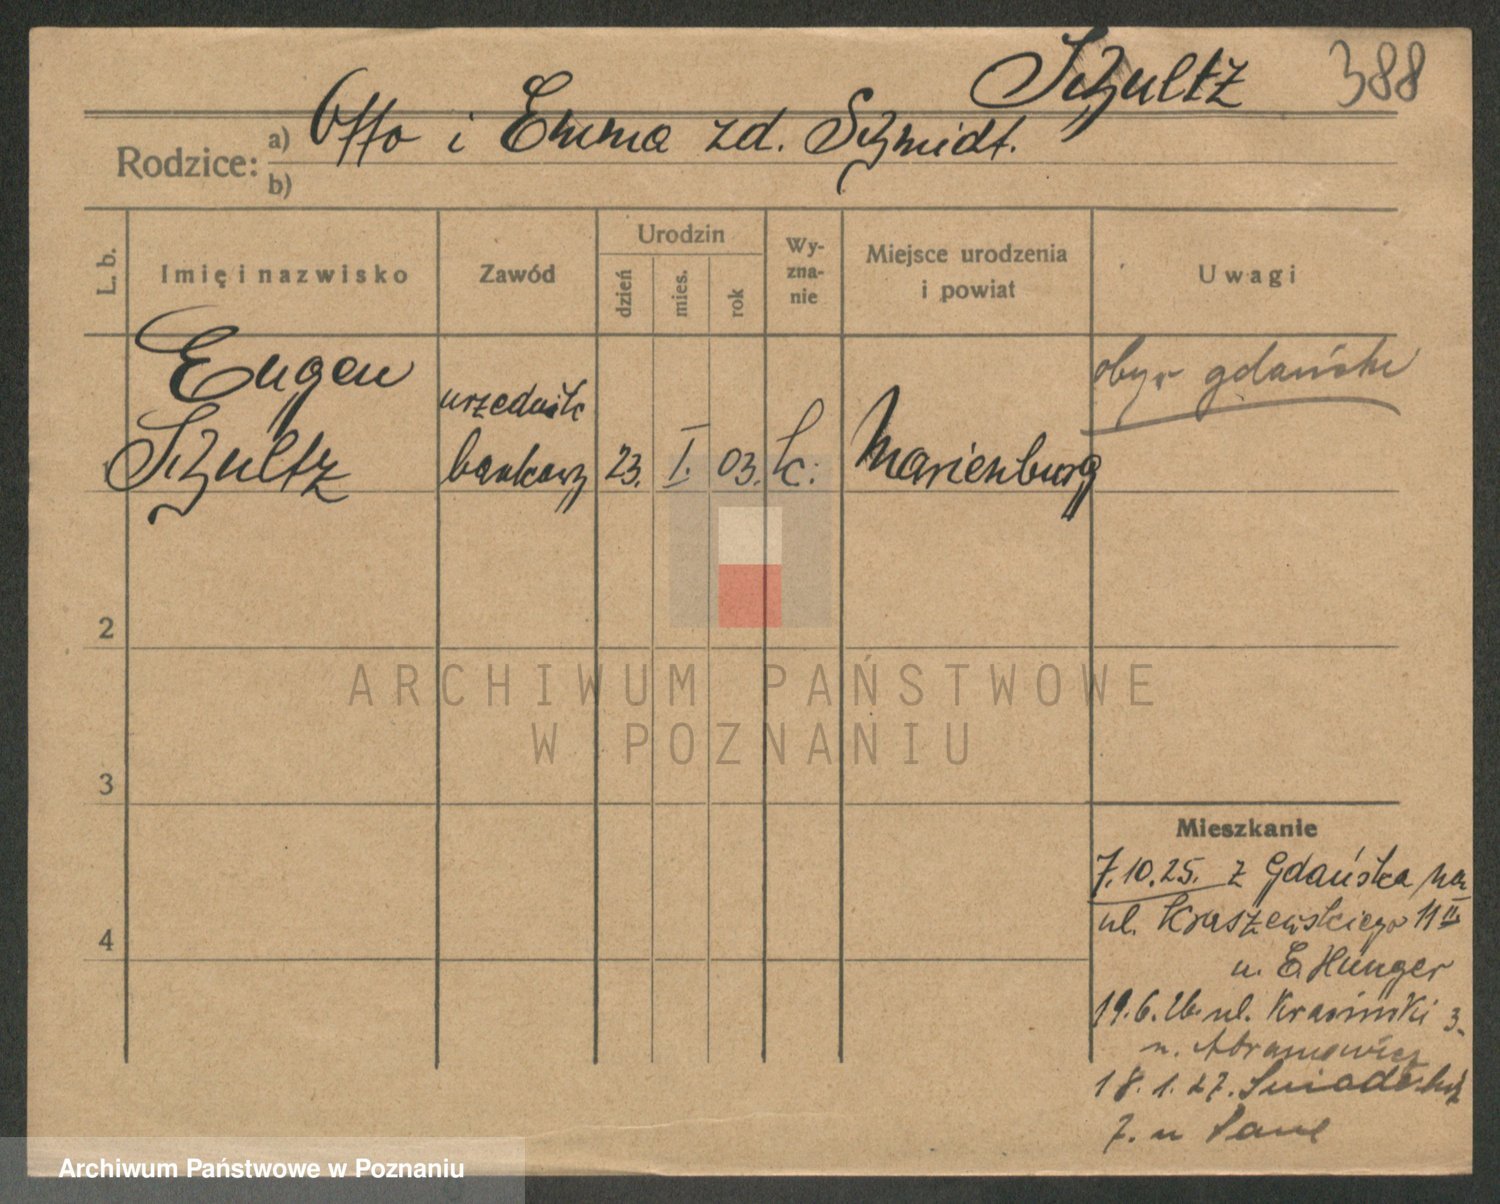 Schultz 388
Rodzice:
a) Otto i Emma zd. Schmidt.
b)
L. b.
Imię i nazwisko
Zawód
Urodzin
dzień
mies.
rok
Wy-
zna-
nie
Miejsce urodzenia
i powiat
Uwagi
Eugen
Schultz
urzędnik
bankowy
23.
I.
03.
k.
Marienburg
obyw gdański
2
3
4
ARCHIWUM PAŃSTWOWE
W POZNANIU
Mieszkanie
7.10.25. z Gdańska na
ul. Kraszewskiego 11 II
u. E. Hünger
19.6.26. ul. Krasiński 3
u. Abramowicz
18.1.27.
7. u
Archiwum Państwowe w Poznaniu